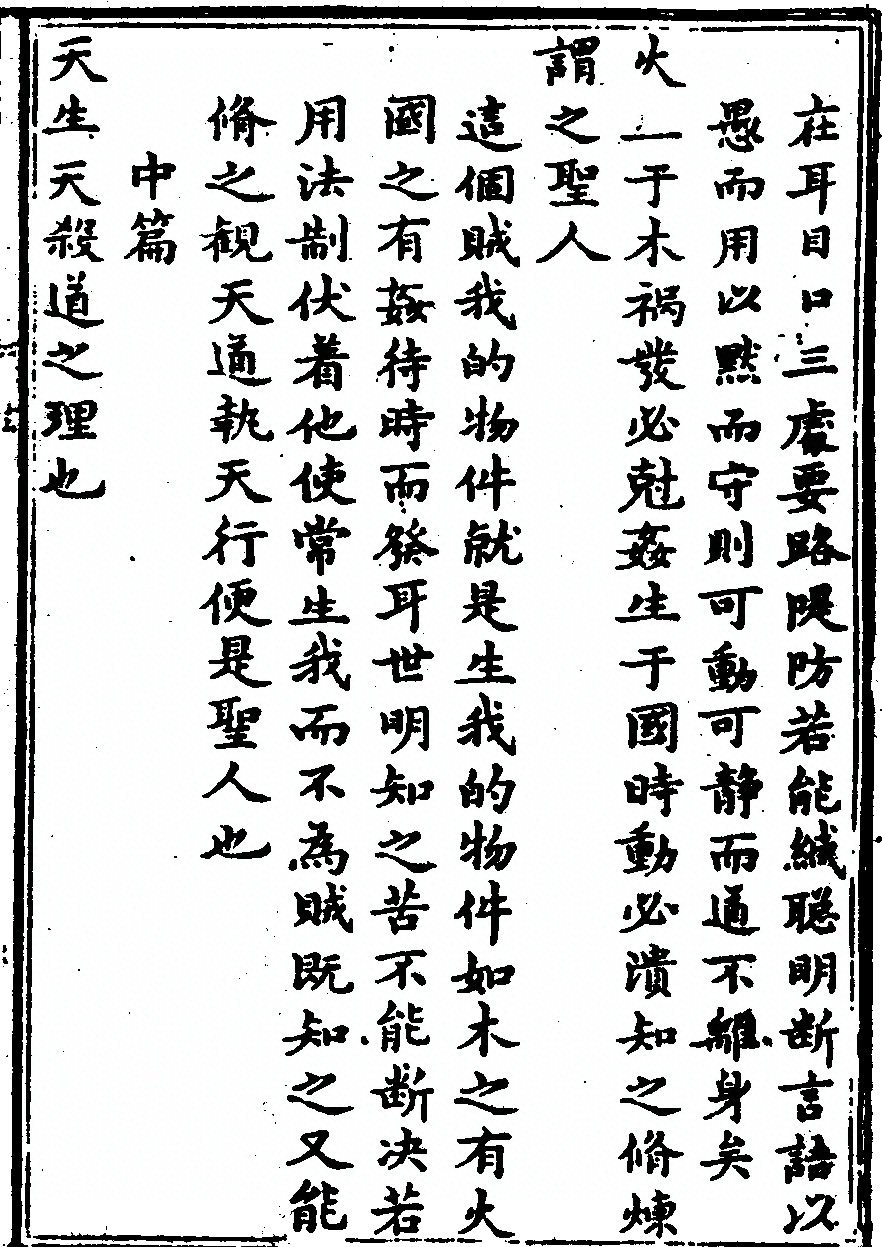 在耳目口三處要路隄防若能緘聰明断言語以
愚而用以黙而守則可動可静而道不離身矣
火一于木禍發必尅姦生于國時動必潰知之脩煉
謂之聖人
這個賊我的物件就是生我的物件如木之有火
國之有姦待時而發耳世明知之苦不能断决若
用法制伏着他使常生我而不為賊既知之又能
脩之觀天道執天行便是聖人也
中篇
天生天殺道之理也